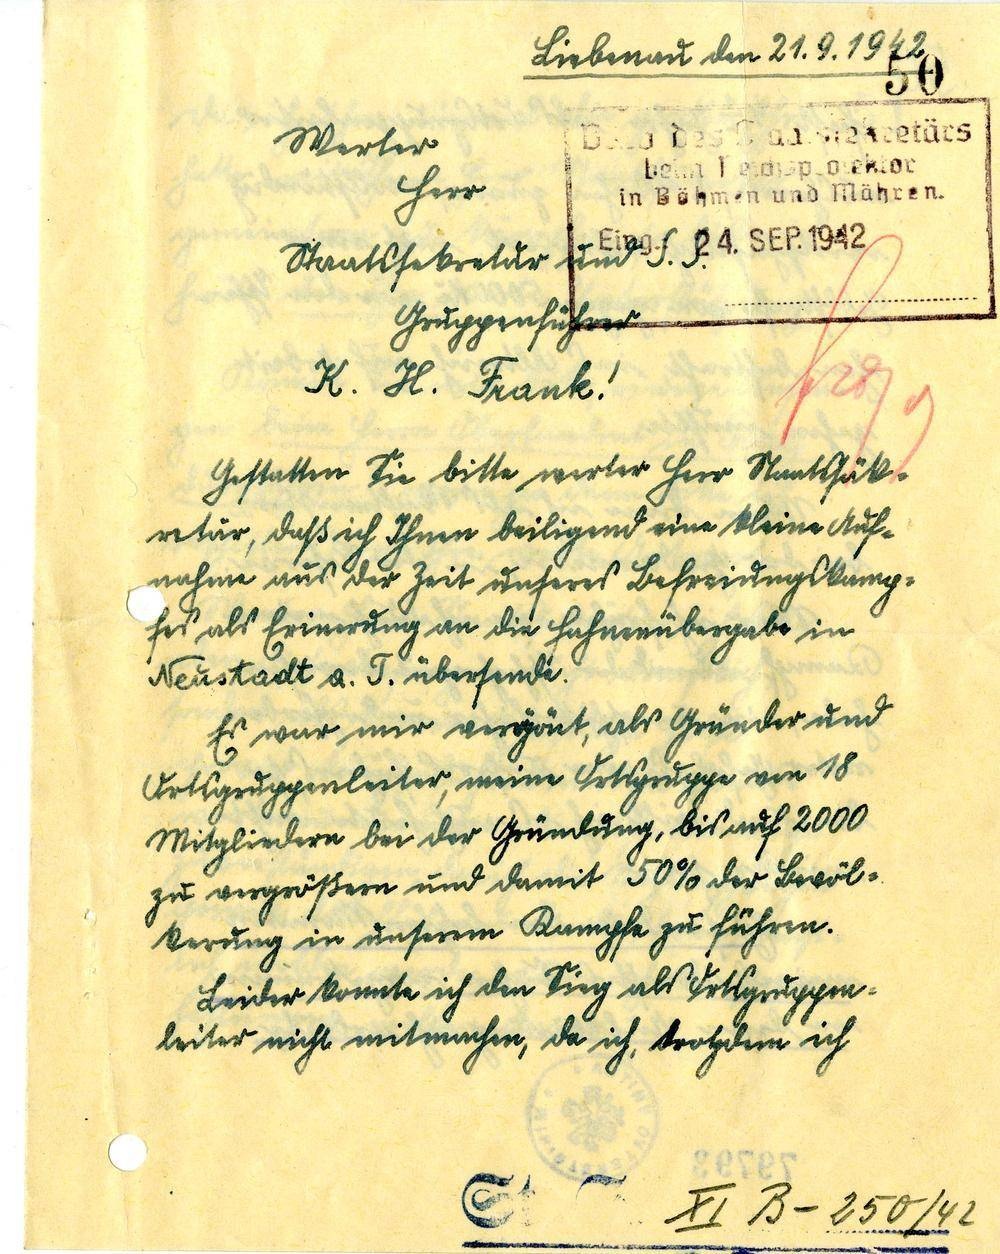 Liebenau den 21.9.1942
50
Büro des Staatssekretärs
beim Reichsprotektor
in Böhmen und Mähren.
Eing.: 24. SEP. 1942
Werter
Herr
Staatssekretär und S. S.
Gruppenführer
K. H. Frank!
Gestatten Sie bitte werter Herr Staatssäk-
retär, daß ich Ihnen beiligend eine kleine Auf-
nahme aus der Zeit unseres Befreiungskamp-
fes als Erinerung an die Fahnenübergabe in
Neustadt a. T. übersende.
Es war mir vergönt, als Gründer und
Ortsgruppenleiter, meine Ortsgruppe von 18
Mitgliedern bei der Gründung, bis auf 2000
zu vergrößern und damit 50% der Bevöl-
kerung in unserem Kampfe zu führen.
Leider konnte ich den Sieg als Ortsgruppen-
leiter nicht mitmachen, da ich, trotzdem ich
79793
St
XI B - 250/42